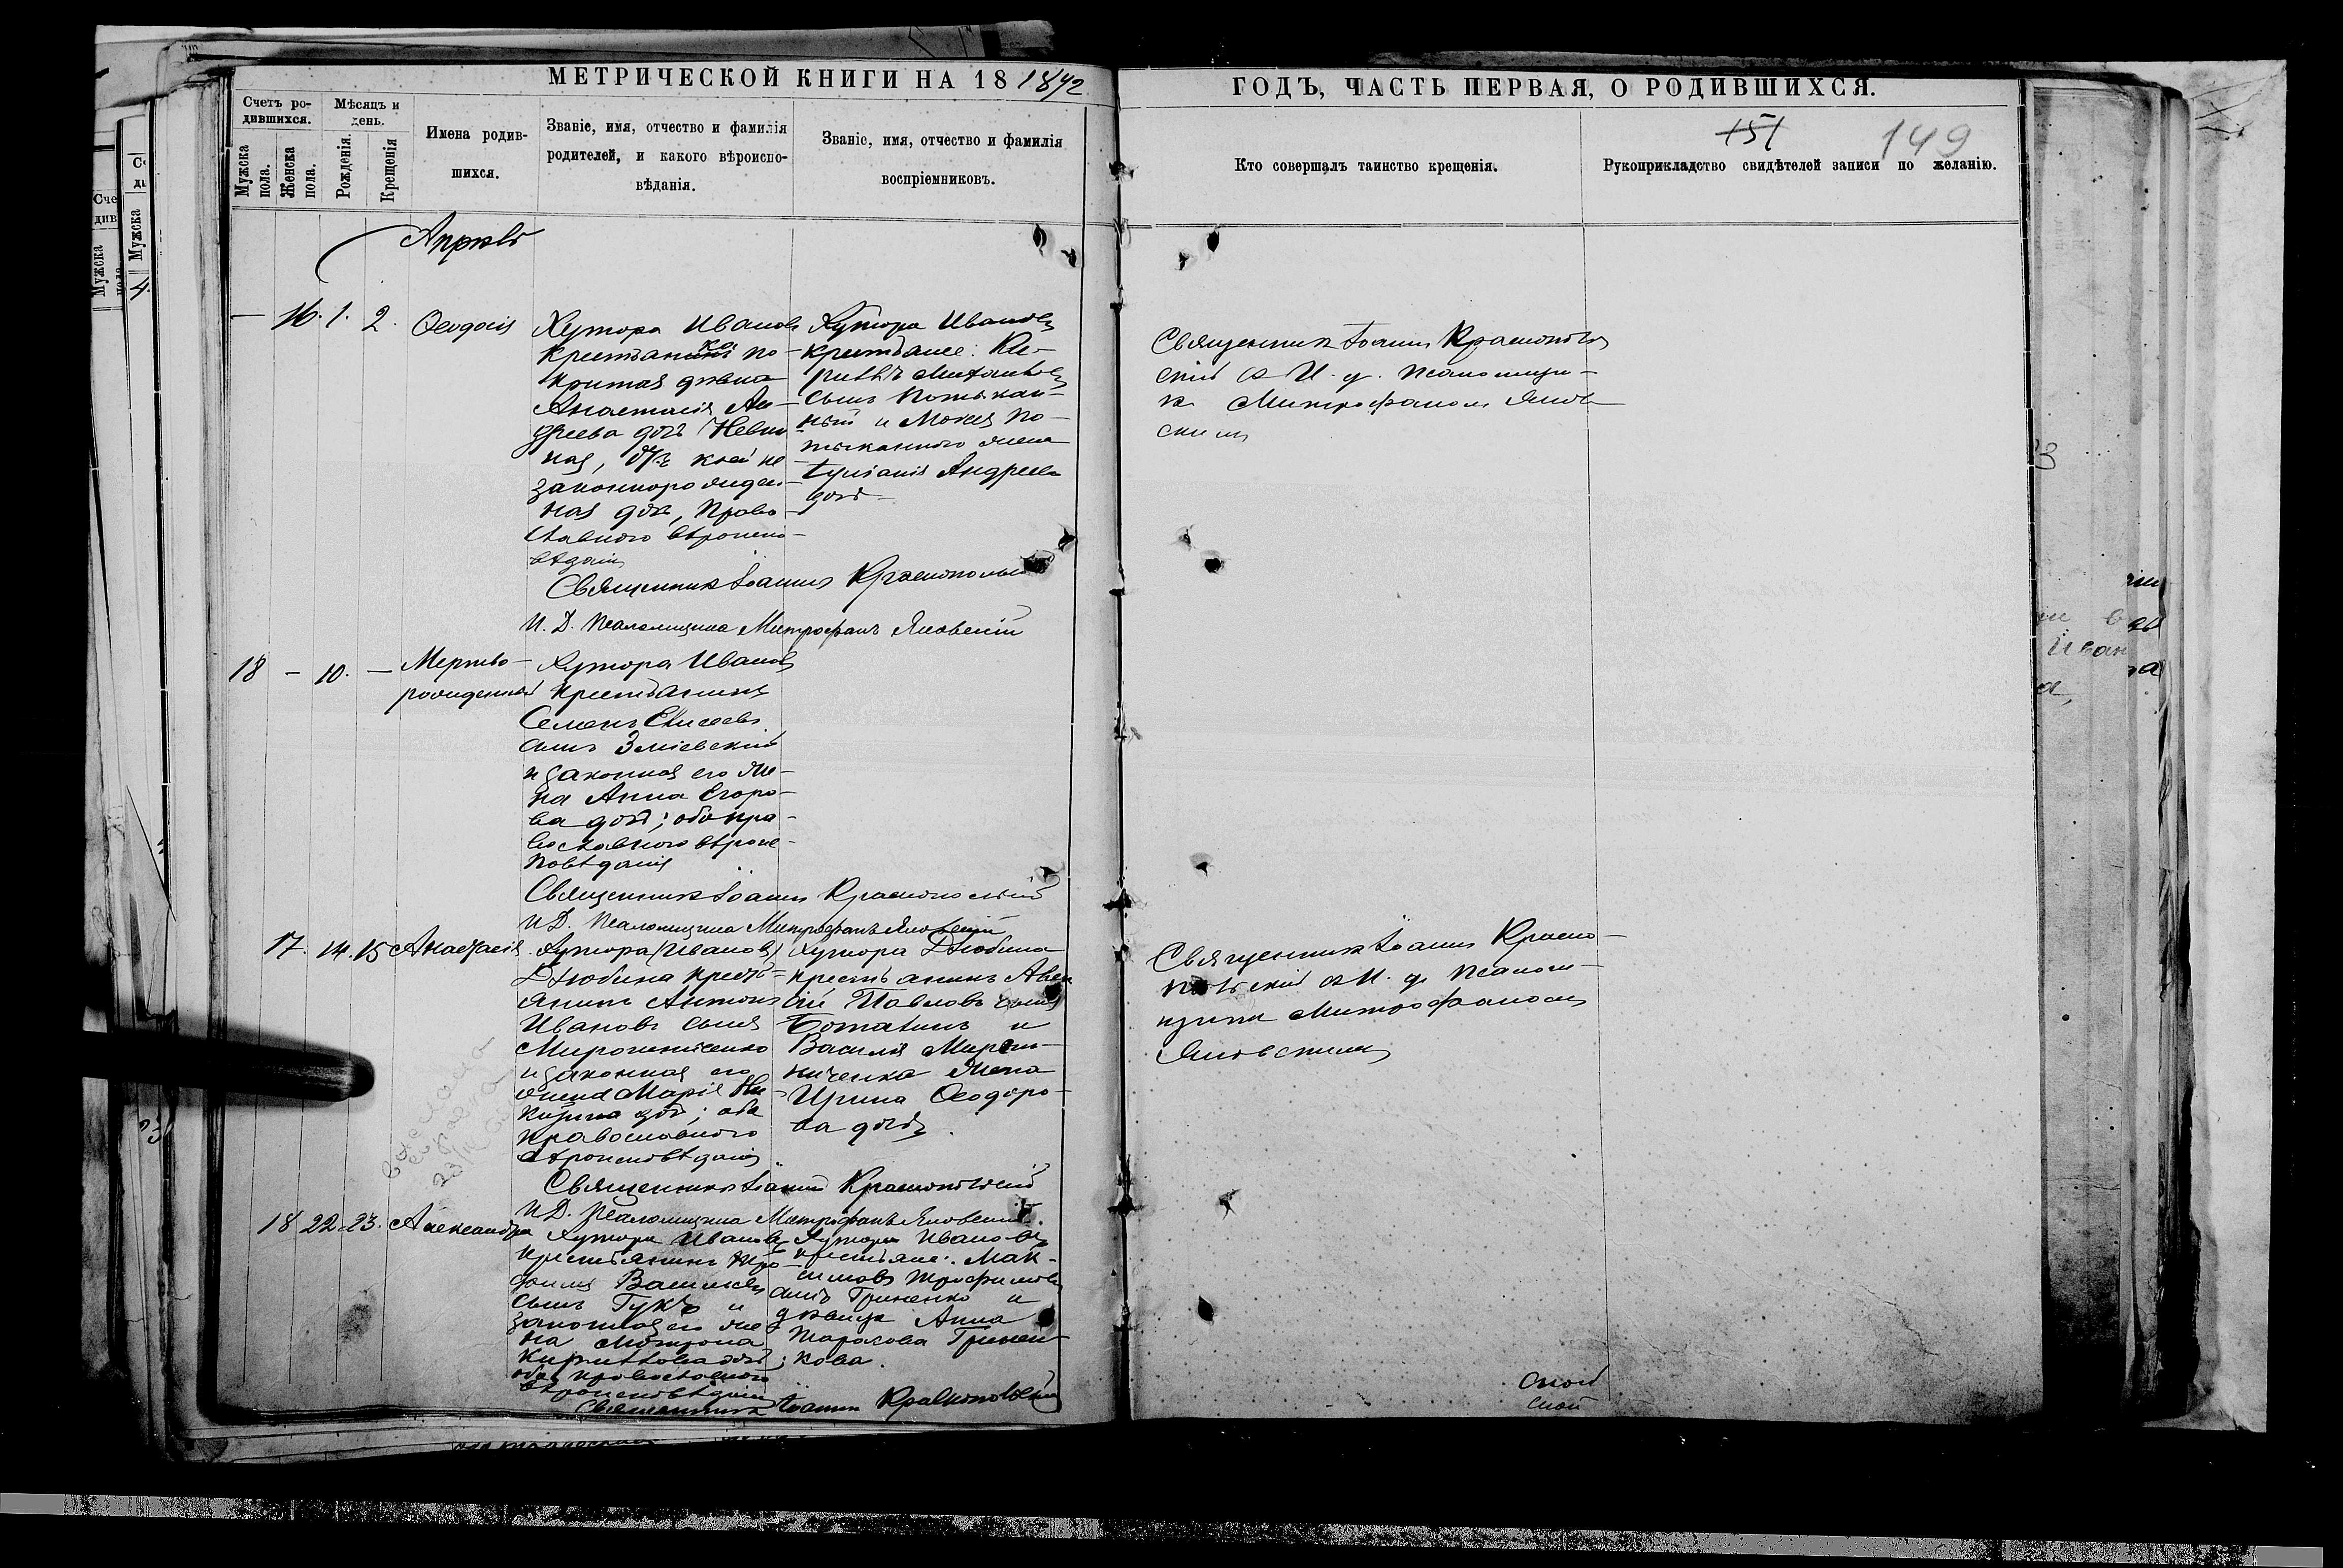 МЕТРИЧЕСКОЙ КНИГИ НА 18
ГОДЪ, ЧАСТЬ ПЕРВАЯ, О РОДИВШИХСЯ.
151
149
Счетъ ро-
дившихся.
Мужска
пола.
Женска
пола.
Мѣсяцъ и
день.
Рожденія.
Крещенія
Имена родив-
шихся.
Званіе, имя, отчество и фамилія
родителей, и какого вѣроиспо-
вѣданія.
Званіе, имя, отчество и фамилія
воспріемниковъ.
Кто совершалъ таинство крещенія.
Рукоприкладство свидѣтелей записи по желанію.
Апрель
— 16. 1. 2. Ѳеодосія
Хутора Иванов
крестьянка по-
крытая девка
Анастасія Ан-
дреева дочь
ная, у коей не
законнорожден-
ная дочь, Право
славного вероиспо-
ведания
Хутора Иванов
крестьяне: Ки-
риллъ Михаиловъ
сынъ Потыкан-
ный и Мокея По-
тыканного жена
Іуліанія Андреева
дочь
Священник Іоаннъ Краснополь
скій с И. д. псаломщи-
ка Митрофаном Янов
ским
Священник Іоаннъ Краснопольскій
И. Д. Псаломщика Митрофанъ Яновскій
18 — 10. — Мертво-
рожденный
Хутора Иванов
крестьянинъ
Семенъ Елисеевъ
сынъ Зміевский
и законная его же-
на Анна Егоро-
ва дочь; оба пра-
вославного вероис-
поведания
Священник Іоаннъ Краснопольскій
И Д. Псаломщика Митрофанъ Яновскій
17. 14. 15 Анастасія
Хутора (Иванов)
Дзюбина крестъ-
янинъ Антонъ
Ивановъ сынъ
Мирошниченко
и законная его
жена Марія Ни-
китина дочь; оба
православного
вероисповедания
Хутора Дзюбина
крестьянинъ
Павловъ сынъ
и
Василія Мирош-
ниченка жена
Ирина Ѳеодоро-
ва дочь.
Священник Іоаннъ Красно-
польскій с И. д. псалом-
щика Митрофаном
Яновским
Священник Іоаннъ Краснопольскій
И Д. Псаломщика Митрофанъ Яновскій.
18 22 23. Александра
Хутора Иванов
крестьянинъ Тро-
фимъ Васильевъ
сынъ Гукъ и
законная его же
на Мотрона
Кириллова дочь;
оба православного
вероисповедания
Хутора Иванов
крестьяне: Мак-
симовъ Трофимовъ
сынъ Гриненко и
девица Анна
Тарасова Гринен-
кова.
Священник Іоаннъ Краснопольскій